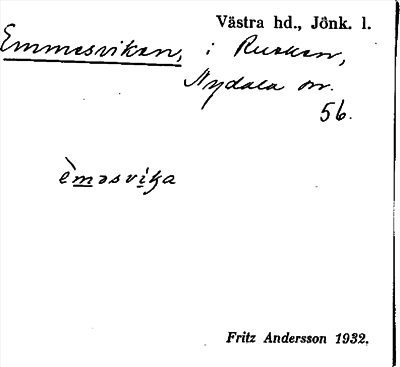 Västra hd., Jönk. l.
Emmasvikan, i Rusken,
Nydala sn.
56.
èmasvika
Fritz Andersson 1932.